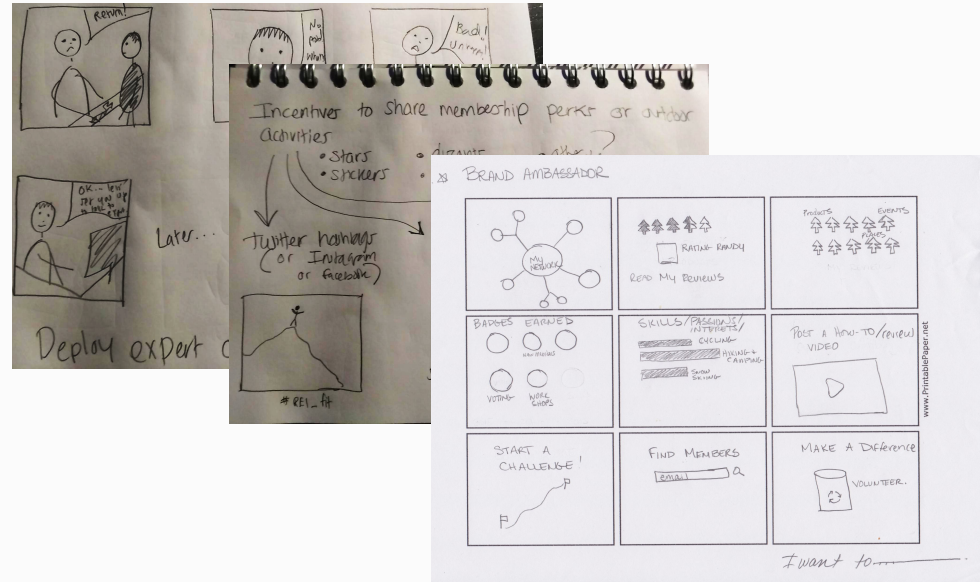 Return!
No
Bad!
OK... let's
Later...
Deploy expert
Incentives to share membership perks or outdoor
activities
• Stars
• stickers
twitter hashtags
(or Instagram
or facebook)
#REI_fit
BRAND AMBASSADOR
MY
NETWORK
RATING RANDY
READ MY REVIEWS
PRODUCTS
EVENTS
PLACES
BADGES EARNED
VOTING
WORK
SHOPS
SKILLS/PASSIONS/
INTERESTS/
CYCLING
HIKING +
CAMPING
SNOW
SKIING
POST A HOW-TO/review
VIDEO
START A
CHALLENGE!
FIND MEMBERS
email
MAKE A Difference
VOLUNTEER.
www.PrintablePaper.net
I want to